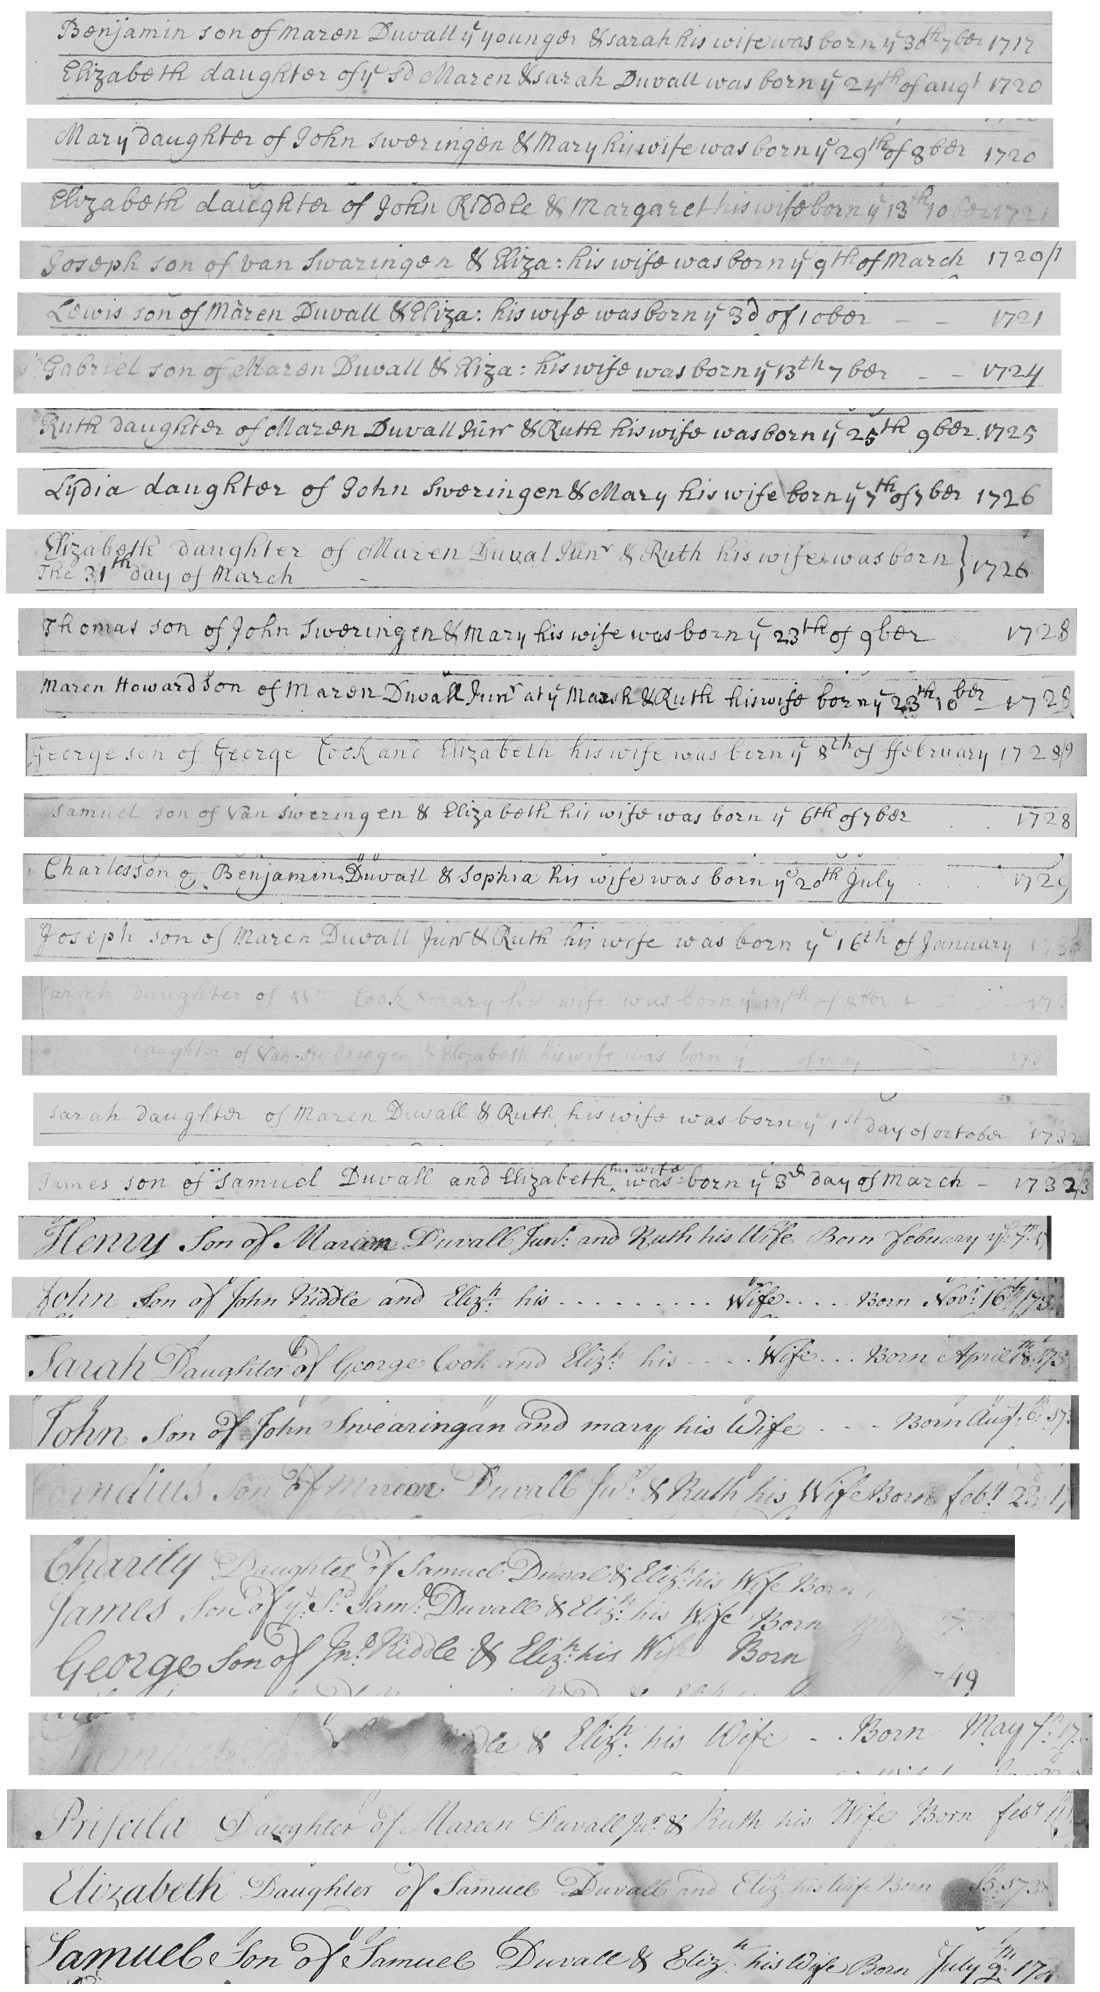 Benjamin son of Maren Duvall yͤ younger & Sarah his wife was born yͤ 30th 7ber 1717
Elizabeth daughter of yͤ sd Maren & Sarah Duvall was born yͤ 24th of augt 1720
Mary daughter of John Sweringen & Mary his wife was born yͤ 29th of 8ber 1720
Elizabeth daughter of John Riddle & Margaret his wife born yͤ 13th 10ber 1721
Joseph son of Van Swaringen & Eliza: his wife was born yͤ 9th of March 1720/1
Lewis son of Maren Duvall & Eliza: his wife was born yͤ 3d of 10ber - - 1721
Gabriel son of Maren Duvall & Eliza: his wife was born yͤ 13th 7ber - - 1724
Ruth daughter of Maren Duvall Junr & Ruth his wife was born yͤ 25th 9ber 1725
Lydia daughter of John Sweringen & Mary his wife born yͤ 7th of 7ber 1726
Elizabeth daughter of Maren Duval Junr & Ruth his wife was born } 1726
The 31th day of March -
Thomas son of John Sweringen & Mary his wife was born yͤ 23th of 9ber 1728
Maren Howard son of Maren Duvall Junr at yͤ Marsh & Ruth his wife born yͤ 23th 10ber 1728
George son of George Cook and Elizabeth his wife was born yͤ 8th of ffebruary 1728/9
Samuel son of Van Sweringen & Elizabeth his wife was born yͤ 6th of 7ber 1728
Charles son of Benjamin Duvall & Sophia his wife was born yͤ 20th July 1729
Joseph son of Maren Duvall Junr & Ruth his wife was born yͤ 16th of January
Sarah daughter of Wm Cook & Mary his wife was born yͤ of 8ber
daughter of Van Sweringen & Elizabeth his wife was born yͤ of may 173
Sarah daughter of Maren Duvall & Ruth his wife was born yͤ 1st day of october 1732
James son of Samuel Duvall and Elizabeth his wife was born yͤ 3rd day of March - 1732/3
Henry Son of Mareen Duvall Junr: and Ruth his Wife Born febuary yͤ: 7th:
John Son of John Riddle and Elizh: his . . . . . . . . . . Wife . . . . Born Novr: 16th 173
Sarah Daughter of George Cook and Elizh his - - - . Wife . . . Born April 18th 173
John Son of John Swearingan and mary his Wife . - - Born Augt: 6th: 17
Cornelius Son of Mareen Duvall Junr: & Ruth his Wife Born feby 23: 17
Charity Daughter of Samuel Duval & Elizh: his Wife Born
James Son of yͤ: Sd: Saml: Duvall & Elizh: his Wife Born 7.
George Son of Jno: Riddle & Elizh: his Wife Born 49
ddle & Elizh: his Wife - . . Born May 7th: 17
Priscila Daughter of Mareen Duvall Junr: & Ruth his Wife Born feby 11th
Elizabeth Daughter of Samuel Duvall and Elizh: his Wife Born 173
Samuel Son of Samuel Duvall & Elizh his Wife Born July 9th: 17